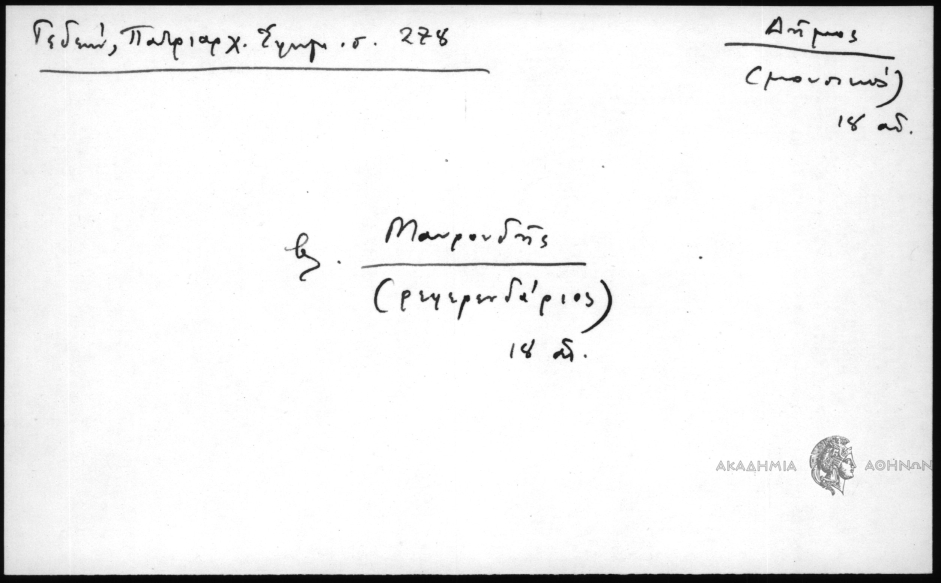 Γεδεών, Πατριαρχ. Έφημ. σ. 278
Δῆμος
(μουσικός)
18 αἰ.
βλ. Μαυρουδῆς
(ρεφερενδάριος)
18 αἰ.
ΑΚΑΔΗΜΙΑ ΑΘΗΝΩΝ